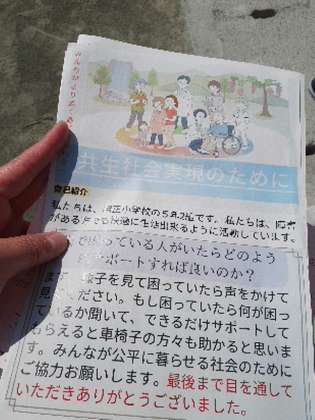 共生社会実現のために
自己紹介
私たちは、 小学校の5年2組です。私たちは、障害
がある方も快適に生活出来るように活動しています。
困っている人がいたらどのよう
ポートすれば良いのか?
様子を見て困っていたら声をかけて
ください。もし困っていたら何が困っ
ているか聞いて、できるだけサポートして
もらえると車椅子の方々も助かると思いま
す。みんなが公平に暮らせる社会のために
ご協力お願いします。最後まで目を通して
いただきありがとうございました。